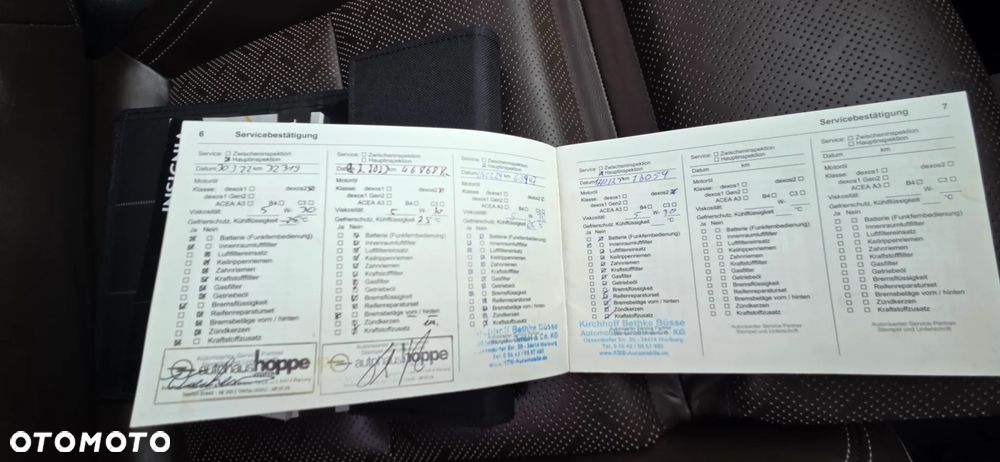 INSIGNIA
6 Servicebestätigung
Service: Zwischeninspektion
Hauptinspektion
Datum 30.3.22 km 32319
Motoröl
Klasse: dexos1 dexos2
dexos1 Gen2
ACEA A3 B4 C3
Viskosität: 5 W- 30
Gefrierschutz, Kühlflüssigkeit °C
Ja Nein
Batterie (Funkfernbedienung)
Innenraumluftfilter
Luftfiltereinsatz
Keilrippenriemen
Zahnriemen
Kraftstofffilter
Gasfilter
Getriebeöl
Bremsflüssigkeit
Reifenreparaturset
Bremsbeläge vorn / hinten
Zündkerzen
Kraftstoffzusatz
autohaus hoppe
Service: Zwischeninspektion
Hauptinspektion
Datum km 46868
Motoröl
Klasse: dexos1 dexos2
dexos1 Gen2
ACEA A3 B4 C3
Viskosität: 5 W- 30
Gefrierschutz, Kühlflüssigkeit 25 °C
Ja Nein
Batterie (Funkfernbedienung)
Innenraumluftfilter
Luftfiltereinsatz
Keilrippenriemen
Zahnriemen
Kraftstofffilter
Gasfilter
Getriebeöl
Bremsflüssigkeit
Reifenreparaturset
Bremsbeläge vorn / hinten
Zündkerzen
Kraftstoffzusatz
autohaus hoppe
Service: Zwischeninspektion
Hauptinspektion
Datum km
Motoröl
Klasse: dexos1 dexos2
dexos1 Gen2
ACEA A3 B4 C3
Viskosität: 5 W-
Gefrierschutz, Kühlflüssigkeit °C
Ja Nein
Batterie (Funkfernbedienung)
Innenraumluftfilter
Luftfiltereinsatz
Keilrippenriemen
Zahnriemen
Kraftstofffilter
Gasfilter
Getriebeöl
Bremsflüssigkeit
Reifenreparaturset
Bremsbeläge vorn / hinten
Zündkerzen
Kraftstoffzusatz
Bethke Büsse
GmbH & Co. KG
Servicebestätigung 7
Service: Zwischeninspektion
Hauptinspektion
Datum km
Motoröl
Klasse: dexos1 dexos2
dexos1 Gen2
ACEA A3 B4 C3
Viskosität: 5 W- 30
Gefrierschutz, Kühlflüssigkeit °C
Ja Nein
Batterie (Funkfernbedienung)
Innenraumluftfilter
Luftfiltereinsatz
Keilrippenriemen
Zahnriemen
Kraftstofffilter
Gasfilter
Getriebeöl
Bremsflüssigkeit
Reifenreparaturset
Bremsbeläge vorn / hinten
Zündkerzen
Kraftstoffzusatz
Kirchhoff Bethke Büsse
Automobile GmbH & Co. KG
Warburg
Service: Zwischeninspektion
Hauptinspektion
Datum km
Motoröl
Klasse: dexos1 dexos2
dexos1 Gen2
ACEA A3 B4 C3
Viskosität: W-
Gefrierschutz, Kühlflüssigkeit °C
Ja Nein
Batterie (Funkfernbedienung)
Innenraumluftfilter
Luftfiltereinsatz
Keilrippenriemen
Zahnriemen
Kraftstofffilter
Gasfilter
Getriebeöl
Bremsflüssigkeit
Reifenreparaturset
Bremsbeläge vorn / hinten
Zündkerzen
Kraftstoffzusatz
Autorisierter Service Partner
Stempel und Unterschrift
Service: Zwischeninspektion
Hauptinspektion
Datum km
Motoröl
Klasse: dexos1 dexos2
dexos1 Gen2
ACEA A3 B4 C3
Viskosität: W-
Gefrierschutz, Kühlflüssigkeit °C
Ja Nein
Batterie (Funkfernbedienung)
Innenraumluftfilter
Luftfiltereinsatz
Keilrippenriemen
Zahnriemen
Kraftstofffilter
Gasfilter
Getriebeöl
Bremsflüssigkeit
Reifenreparaturset
Bremsbeläge vorn / hinten
Zündkerzen
Kraftstoffzusatz
Autorisierter Service Partner
Stempel und Unterschrift
OTOMOTO